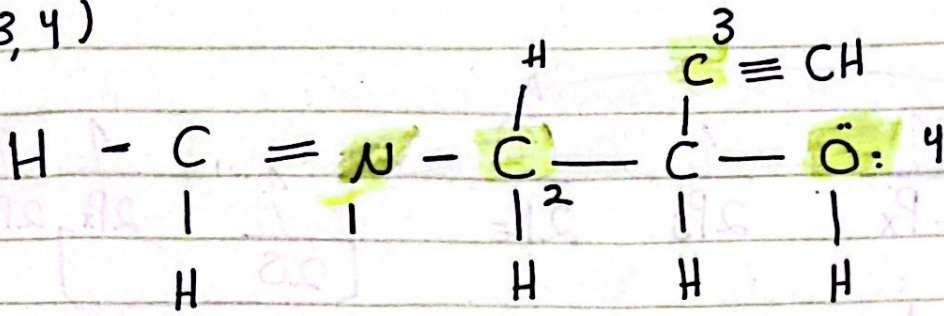 3,4)
3
H C ≡ CH
H - C = N - C - C - Ö: 4
2
H H H H